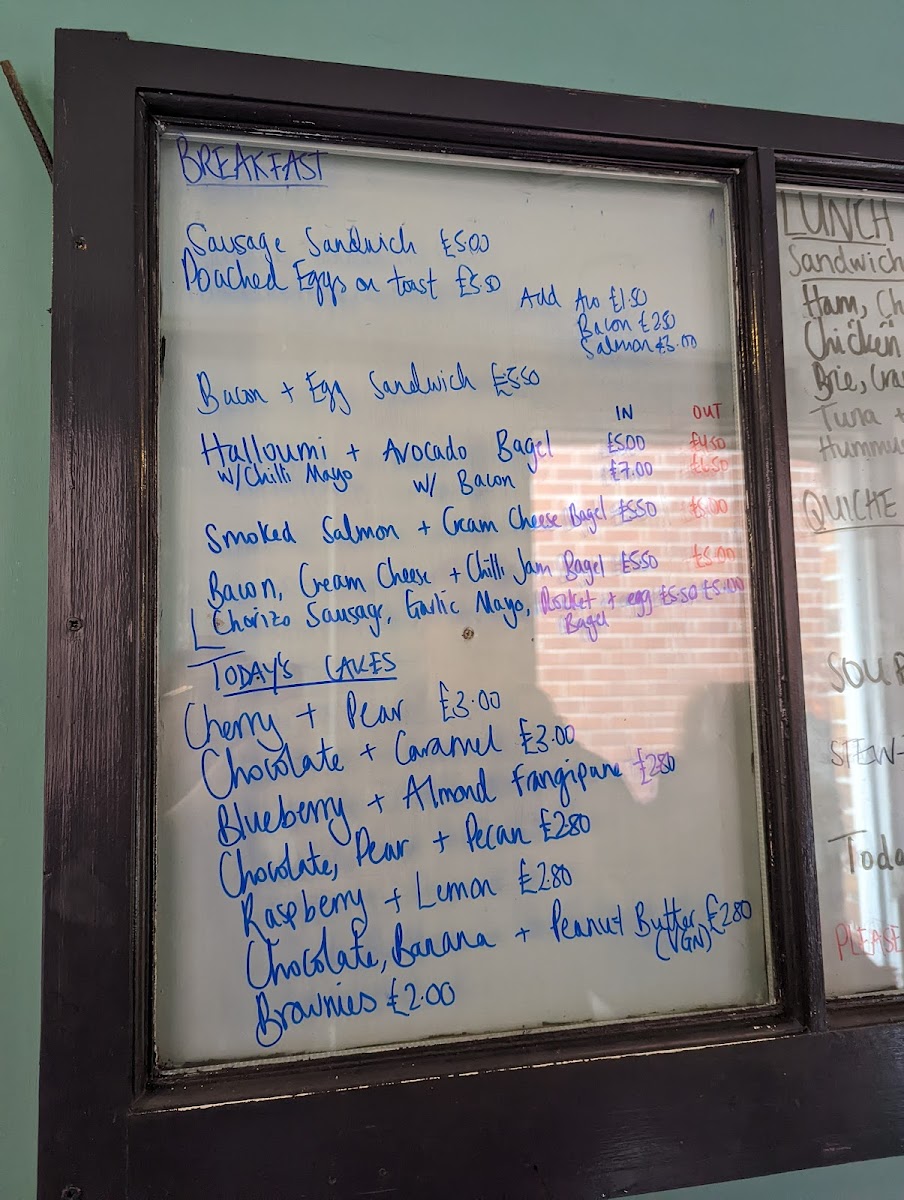 BREAKFAST
Sausage Sandwich £5.00
Poached Eggs on toast £5.50
Add Avo £1.50
Bacon £2.50
Salmon £3.00
Bacon + Egg Sandwich £5.50
IN OUT
Halloumi + Avocado Bagel £5.00 £4.50
w/ Chilli Mayo w/ Bacon £7.00 £6.50
Smoked Salmon + Cream Cheese Bagel £5.50 £5.00
Bacon, Cream Cheese + Chilli Jam Bagel £5.50 £5.00
Chorizo Sausage, Garlic Mayo, Rocket + egg £5.50 £5.00
Bagel
TODAY'S CAKES
Cherry + Pear £3.00
Chocolate + Caramel £3.00
Blueberry + Almond frangipane £2.80
Chocolate, Pear + Pecan £2.80
Raspberry + Lemon £2.80
Chocolate, Banana + Peanut Butter £2.80
(VGN)
Brownies £2.00
LUNCH
Sandwich
Ham, Ch
Chicken
Brie, Cra
Tuna +
Hummus
QUICHE
SOUP
STEW-
Toda
PLEASE